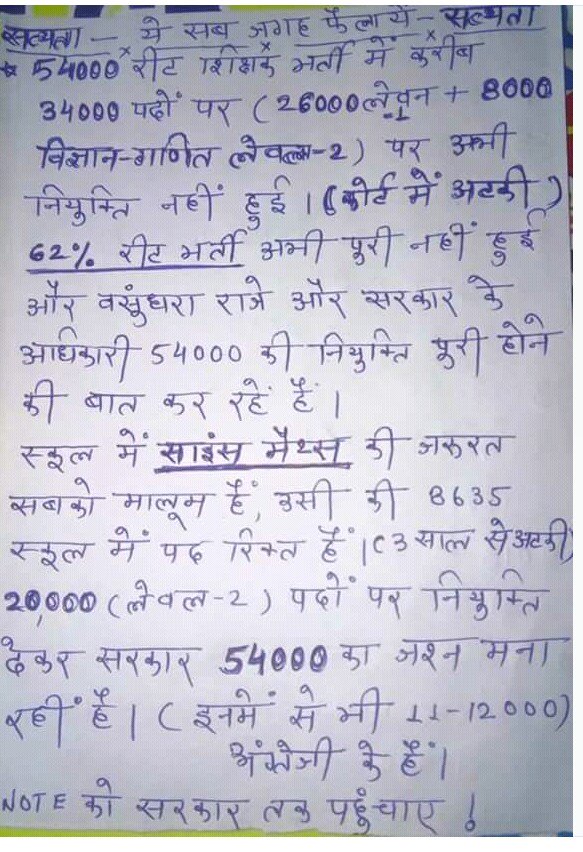 सत्यता - ये सब जगह फैलाये - सत्यता
* 54000 रीट शिक्षक भर्ती में करीब
34000 पदों पर (26000 लेवल-1 + 8000
विज्ञान-गणित लेवल-2) पर अभी
नियुक्ति नहीं हुई। (कोर्ट में अटकी)
62% रीट भर्ती अभी पूरी नहीं हुई
और वसुंधरा राजे और सरकार के
अधिकारी 54000 की नियुक्ति पूरी होने
की बात कर रहें हैं।
स्कूल में साइंस मैथ्स की जरुरत
सबको मालूम हैं, उसी की 8635
स्कूल में पद रिक्त हैं। (3 साल से अटकी)
20,000 (लेवल-2) पदों पर नियुक्ति
देकर सरकार 54000 का जश्न मना
रहीं है। (इनमें से भी 11-12000)
अंग्रेजी के हैं।
NOTE को सरकार तक पहुंचाए !